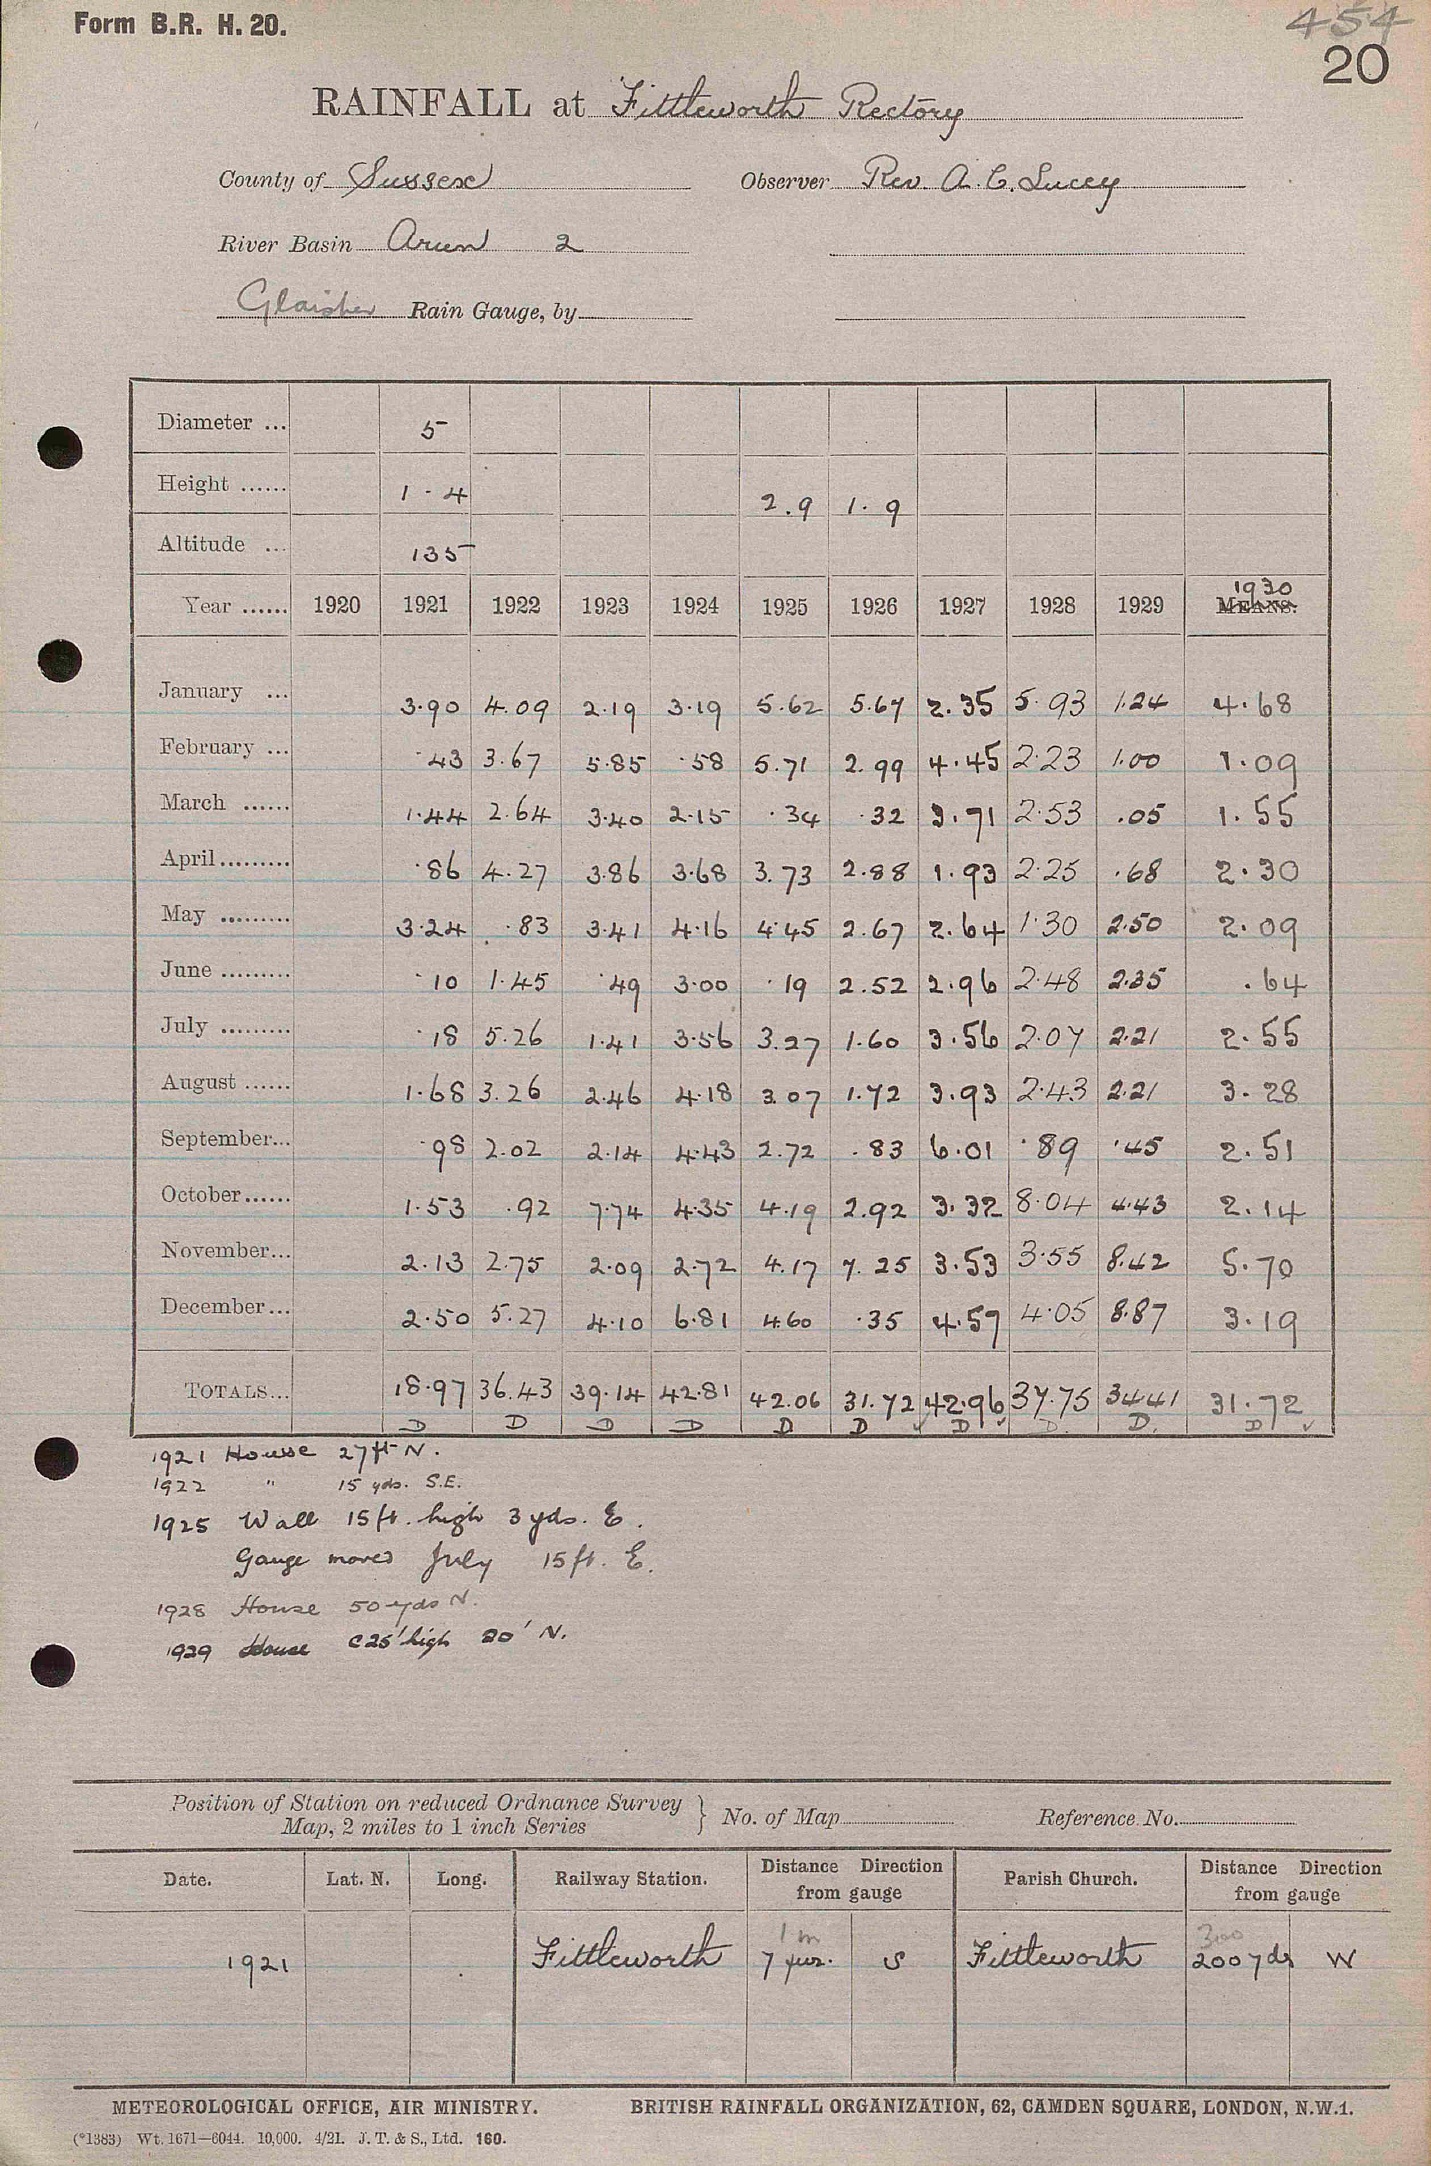 Form B.R. H. 20.
454
20
RAINFALL at Fittleworth Rectory
County of Sussex Observer Rev. A. C. Lucey
River Basin Arun 2
Glaisher Rain Gauge, by
Diameter ... 5
Height ...... 1.4 2.9 1.9
Altitude ... 135
1930
Year ...... 1920 1921 1922 1923 1924 1925 1926 1927 1928 1929 MEANS.
January ... 3.90 4.09 2.19 3.19 5.62 5.67 2.35 5.93 1.24 4.68
February ... .43 3.67 5.85 .58 5.71 2.99 4.45 2.23 1.00 1.09
March ...... 1.44 2.64 3.40 2.15 .34 .32 3.71 2.53 .05 1.55
April......... .86 4.27 3.86 3.68 3.73 2.88 1.93 2.25 .68 2.30
May ......... 3.24 .83 3.41 4.16 4.45 2.67 2.64 1.30 2.50 2.09
June ......... .10 1.45 .49 3.00 .19 2.52 2.96 2.48 2.35 .64
July ......... .18 5.26 1.41 3.56 3.27 1.60 3.56 2.07 2.21 2.55
August ...... 1.68 3.26 2.46 4.18 3.07 1.72 3.93 2.43 2.21 3.28
September... .98 2.02 2.14 4.43 2.72 .83 6.01 .89 .45 2.51
October...... 1.53 .92 7.74 4.35 4.19 2.92 3.32 8.04 4.43 2.14
November... 2.13 2.75 2.09 2.72 4.17 7.25 3.53 3.55 8.42 5.70
December... 2.50 5.27 4.10 6.81 4.60 .35 4.57 4.05 8.87 3.19
TOTALS... 18.97 36.43 39.14 42.81 42.06 31.72 42.96 37.75 34.41 31.72
D D D D D D ✓ D ✓ D. D. D ✓
1921 House 27ft N.
1922 " 15 yds. S.E.
1925 Wall 15ft. high 3 yds. E.
Gauge moved July 15ft. E.
1928 House 50 yds N.
1929 House c25' high 20' N.
Position of Station on reduced Ordnance Survey
Map, 2 miles to 1 inch Series } No. of Map Reference No.
Date. Lat. N. Long. Railway Station. Distance Direction from gauge Parish Church. Distance Direction from gauge
1 m 300
1921 Fittleworth 7 fur. S Fittleworth 200 yds W
METEOROLOGICAL OFFICE, AIR MINISTRY. BRITISH RAINFALL ORGANIZATION, 62, CAMDEN SQUARE, LONDON, N.W.1.
(*1383) Wt. 1671—6044. 10,000. 4/21. J. T. & S., Ltd. 160.